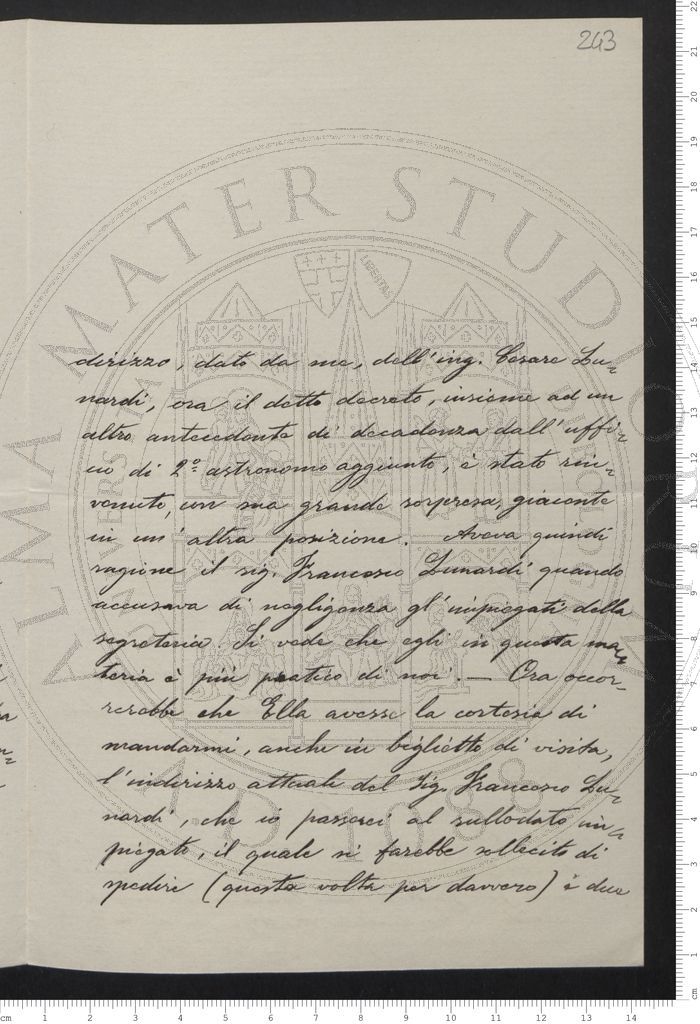 243
dirizzo, dato da me, dell'ing. Cesare Lu-
nardi, ora il detto decreto, insieme ad un
altro antecedente di decadenza dall'uffi-
cio di 2º astronomo aggiunto, è stato rin-
venuto, con mia grande sorpresa, giacente
in un'altra posizione. Aveva quindi
ragione il sig. Francesco Lunardi quando
accusava di negligenza gl'impiegati della
segreteria. Si vede che egli in questa ma-
teria è più pratico di noi. — Ora occor-
rerebbe che Ella avesse la cortesia di
mandarmi, anche in biglietto di visita,
l'indirizzo attuale del Sig. Francesco Lu-
nardi, che io passerei al sullodato im-
piegato, il quale si farebbe sollecito di
spedire (questa volta per davvero) i due
ALMA MATER STUDIORUM
LIBERTAS
A.D. 1088